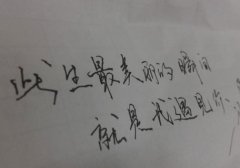 此生最美丽的瞬间
就是我遇见你